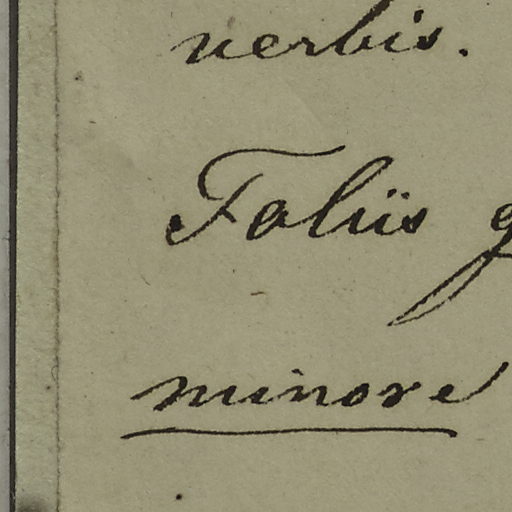 verbis.
Foliis
minore